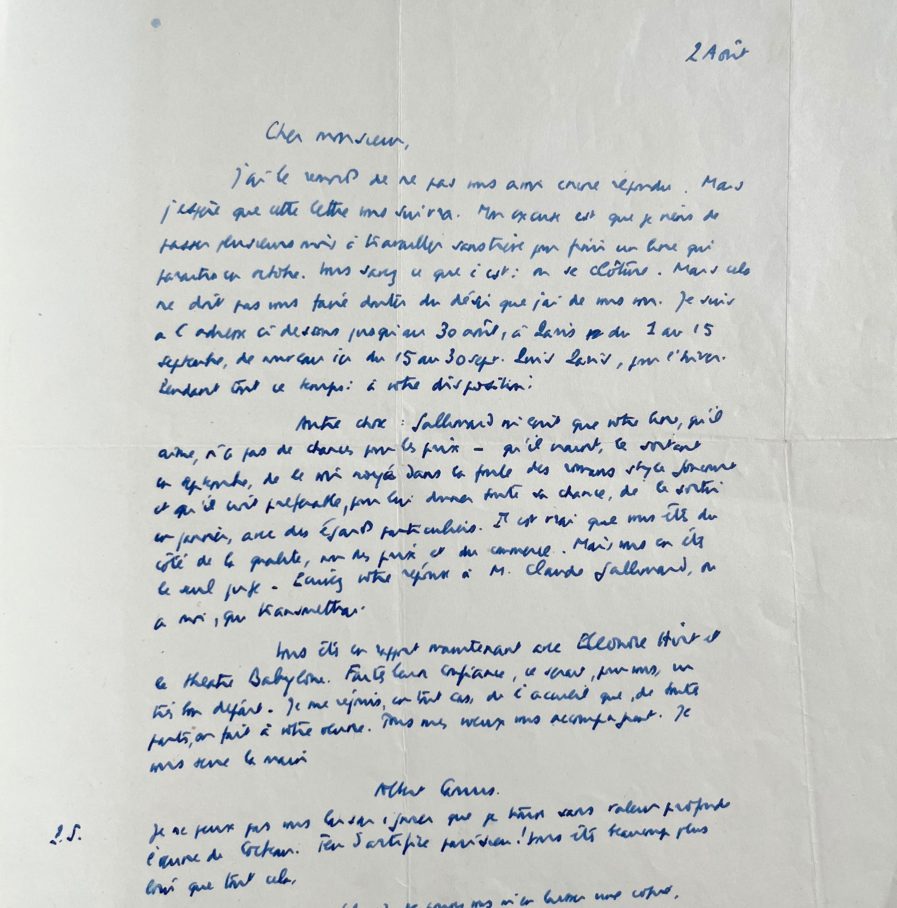 2 Août
Cher monsieur,
j'ai le remords de ne pas vous avoir encore répondu. Mais
j'espère que cette lettre vous suivra. Mon excuse est que je viens de
passer plusieurs mois à travailler sans trêve pour finir un livre qui
paraîtra en octobre. Vous savez ce que c'est : on se clôture. Mais cela
ne doit pas vous faire douter du désir que j'ai de vous voir. Je suis
à l'adresse ci dessous jusqu'au 30 août, à Paris du 1 au 15
septembre, de nouveau ici du 15 au 30 sept. Puis Paris, pour l'hiver.
Pendant tout ce temps : à votre disposition.
Autre chose : Gallimard m'écrit que votre livre, qu'il
aime, n'a pas de chances pour les prix – qu'il craint, le sortant
en septembre, de le voir noyé dans la foule des romans style
et qu'il croit préférable, pour lui donner toute sa chance, de le sortir
en janvier, avec des égards particuliers. Il est vrai que vous êtes du
côté de la qualité, non des prix et du commerce. Mais vous en êtes
le seul juge – Écrivez votre réponse à M. Claude Gallimard, ou
à moi, qui transmettrai.
Vous êtes en rapport maintenant avec Eléonore Hirt et
le théâtre Babylone. Faites leur confiance, ce serait, pour vous, un
très bon départ. Je me réjouis, en tout cas, de l'accueil que, de toutes
parts, on fait à votre œuvre. Tous mes vœux vous accompagnent. Je
vous serre la main
Albert Camus.
P.S. Je ne peux pas vous laisser ignorer que je tiens sans valeur profonde
l'œuvre de Cocteau. Feu d'artifice parisien ! Vous êtes beaucoup plus
loin que tout cela.
vous m'en laisser une copie.